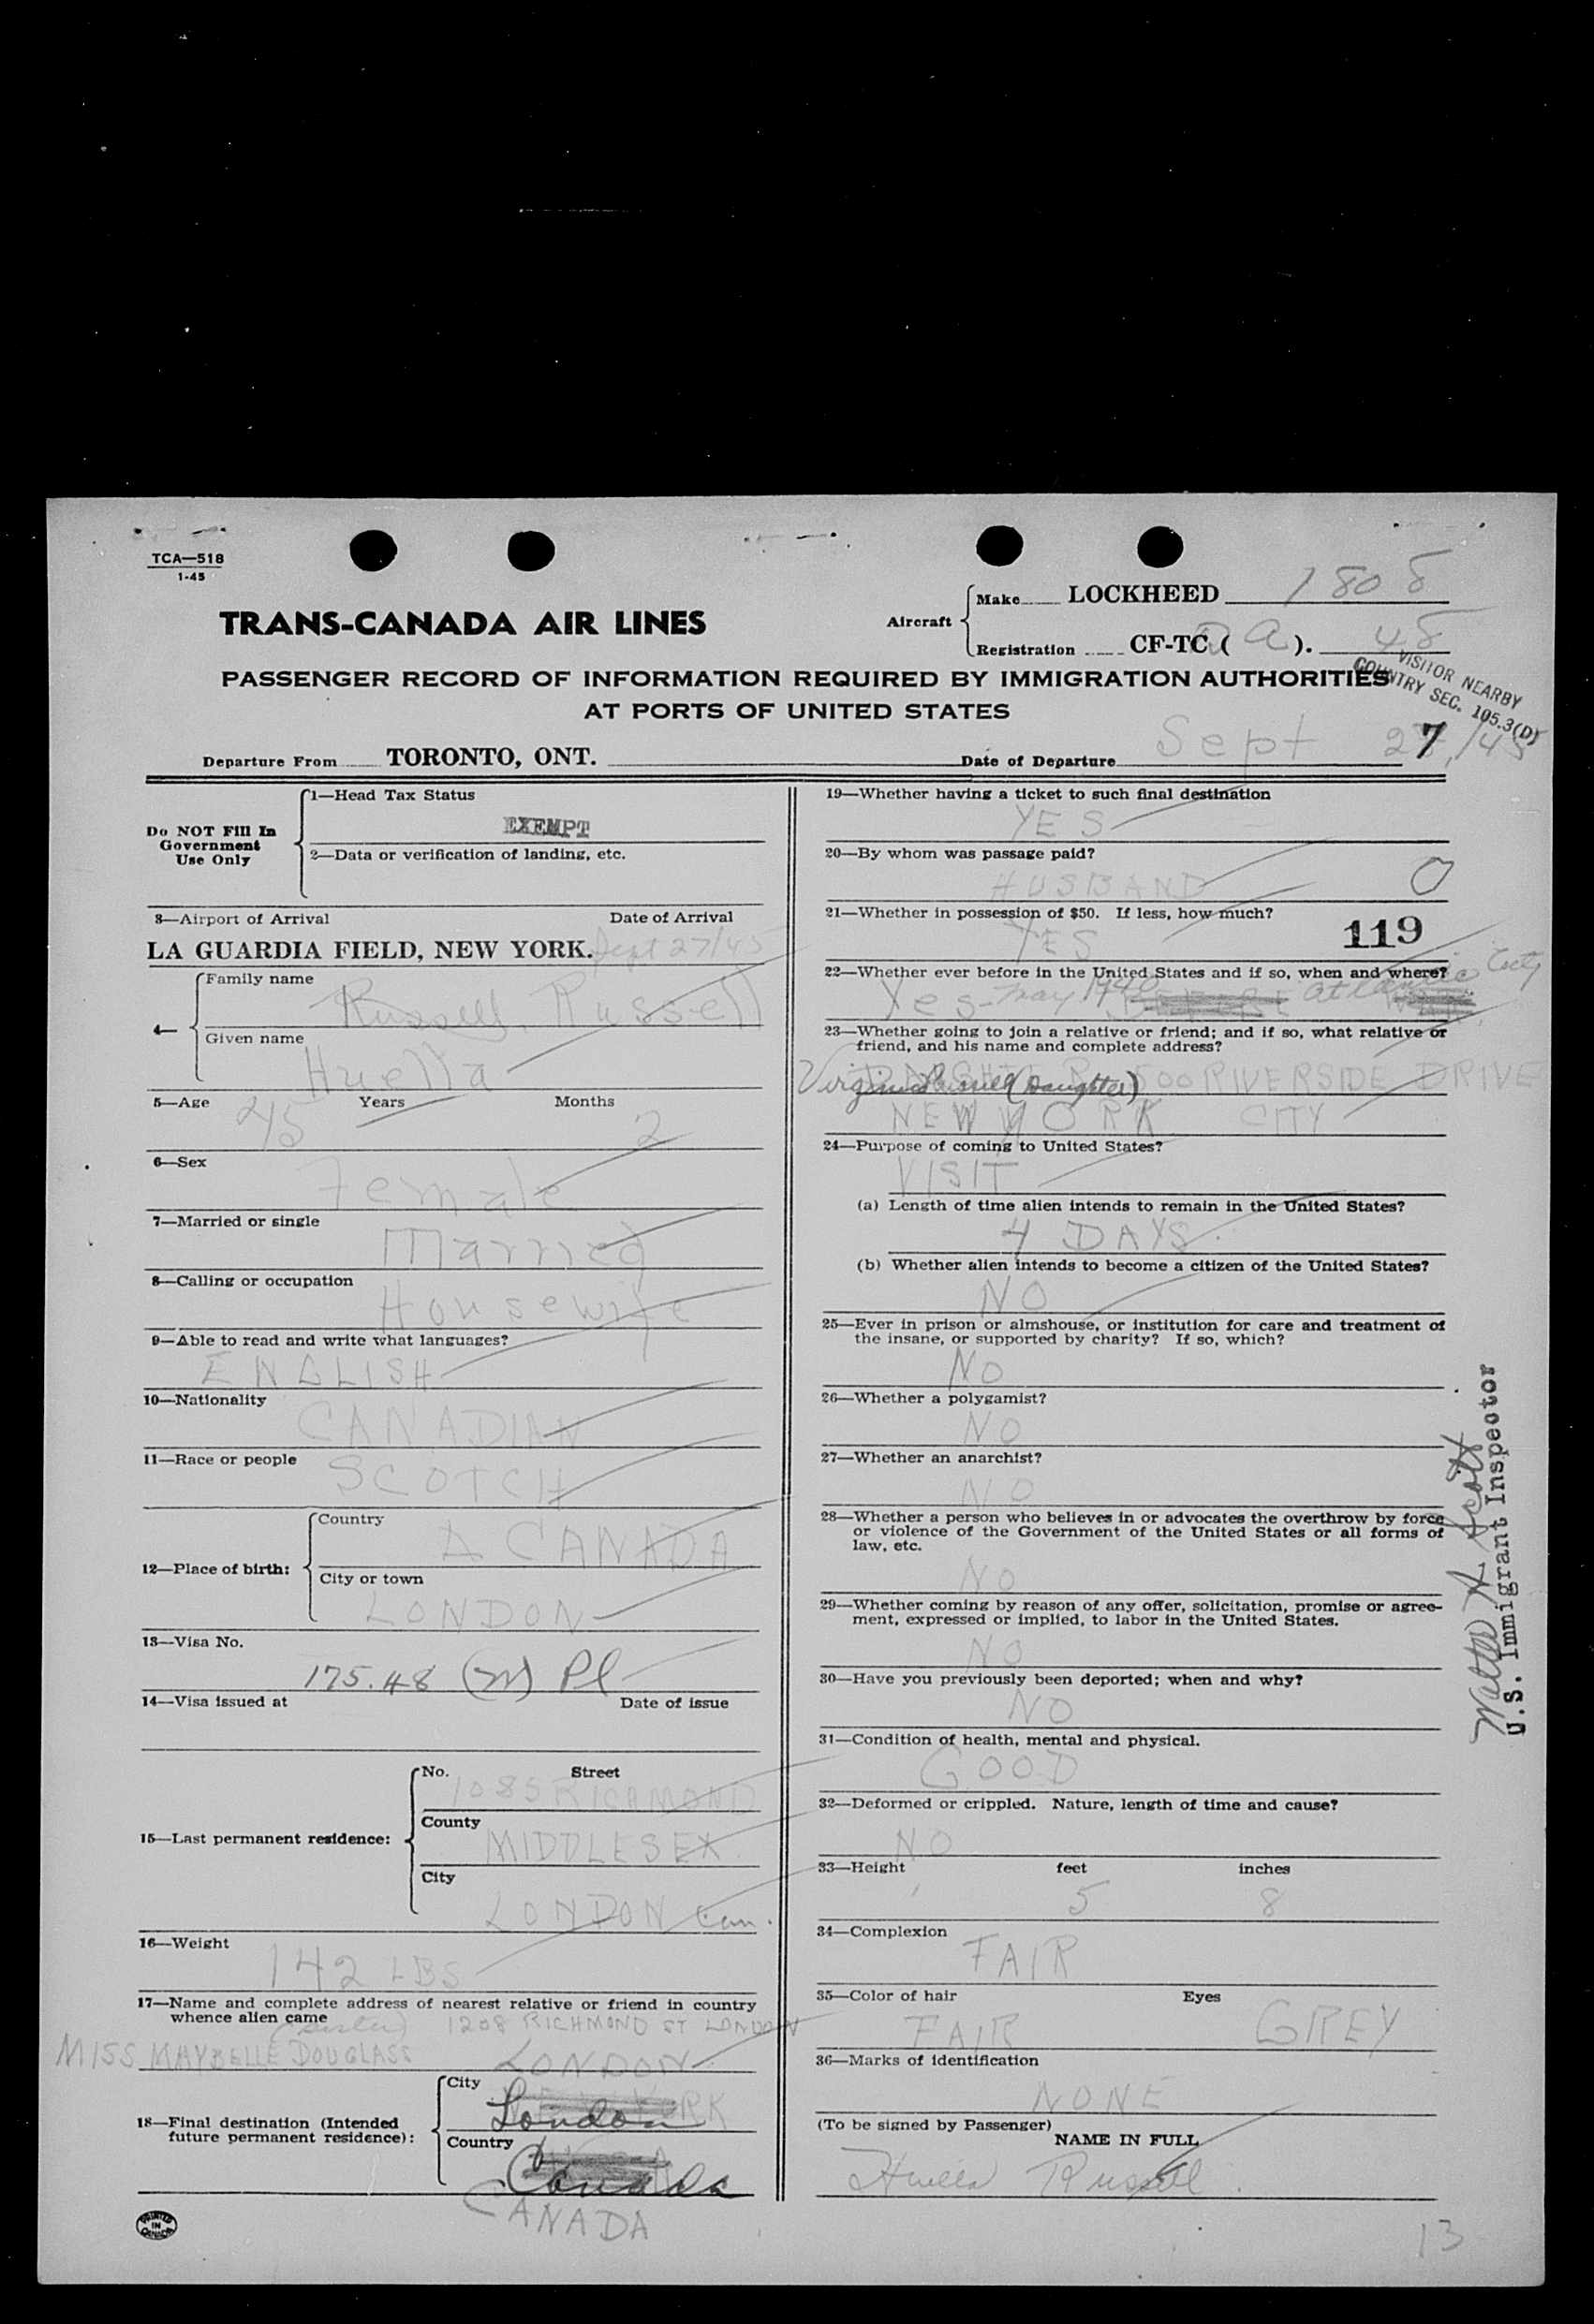 TCA—518
1-45
TRANS-CANADA AIR LINES
Aircraft
Make LOCKHEED 1808
Registration CF-TC ( A ). 48
VISITOR NEARBY
COUNTRY SEC. 105.3(D)
PASSENGER RECORD OF INFORMATION REQUIRED BY IMMIGRATION AUTHORITIES
AT PORTS OF UNITED STATES
Departure From TORONTO, ONT. Date of Departure Sept 27/45
Do NOT Fill In
Government
Use Only
1—Head Tax Status
EXEMPT
2—Data or verification of landing, etc.
3—Airport of Arrival Date of Arrival
LA GUARDIA FIELD, NEW YORK. Sept 27/45
4—
Family name
Russell, Russell
Given name
Huella
5—Age Years Months
45 2
6—Sex
Female
7—Married or single
Married
8—Calling or occupation
Housewife
9—Able to read and write what languages?
ENGLISH
10—Nationality
CANADIAN
11—Race or people
SCOTCH
12—Place of birth:
Country
CANADA
City or town
LONDON
13—Visa No.
175.48 (m) Pl
14—Visa issued at Date of issue
15—Last permanent residence:
No. Street
1085 RICHMOND
County
MIDDLESEX
City
LONDON Can.
16—Weight
142 LBS
17—Name and complete address of nearest relative or friend in country
whence alien came
(sister) 1208 RICHMOND ST LONDON
MISS MAYBELLE DOUGLASS LONDON
18—Final destination (Intended
future permanent residence):
City
London
Country
Canada
CANADA
PRINTED
IN
CANADA
19—Whether having a ticket to such final destination
YES
20—By whom was passage paid?
HUSBAND
0
21—Whether in possession of $50. If less, how much?
YES
119
22—Whether ever before in the United States and if so, when and where?
Yes - May 1940 Atlantic City
23—Whether going to join a relative or friend; and if so, what relative or
friend, and his name and complete address?
Virginia Russell (Daughter) 500 RIVERSIDE DRIVE
NEW YORK CITY
24—Purpose of coming to United States?
VISIT
(a) Length of time alien intends to remain in the United States?
4 DAYS.
(b) Whether alien intends to become a citizen of the United States?
NO
25—Ever in prison or almshouse, or institution for care and treatment of
the insane, or supported by charity? If so, which?
NO
26—Whether a polygamist?
NO
27—Whether an anarchist?
NO
28—Whether a person who believes in or advocates the overthrow by force
or violence of the Government of the United States or all forms of
law, etc.
NO
29—Whether coming by reason of any offer, solicitation, promise or agree-
ment, expressed or implied, to labor in the United States.
NO
30—Have you previously been deported; when and why?
NO
31—Condition of health, mental and physical.
GOOD
32—Deformed or crippled. Nature, length of time and cause?
NO
33—Height feet inches
5 8
34—Complexion
FAIR
35—Color of hair Eyes
FAIR GREY
36—Marks of identification
NONE
(To be signed by Passenger)
NAME IN FULL
Huella Russell
Walter A. Scott
U.S. Immigrant Inspector
13